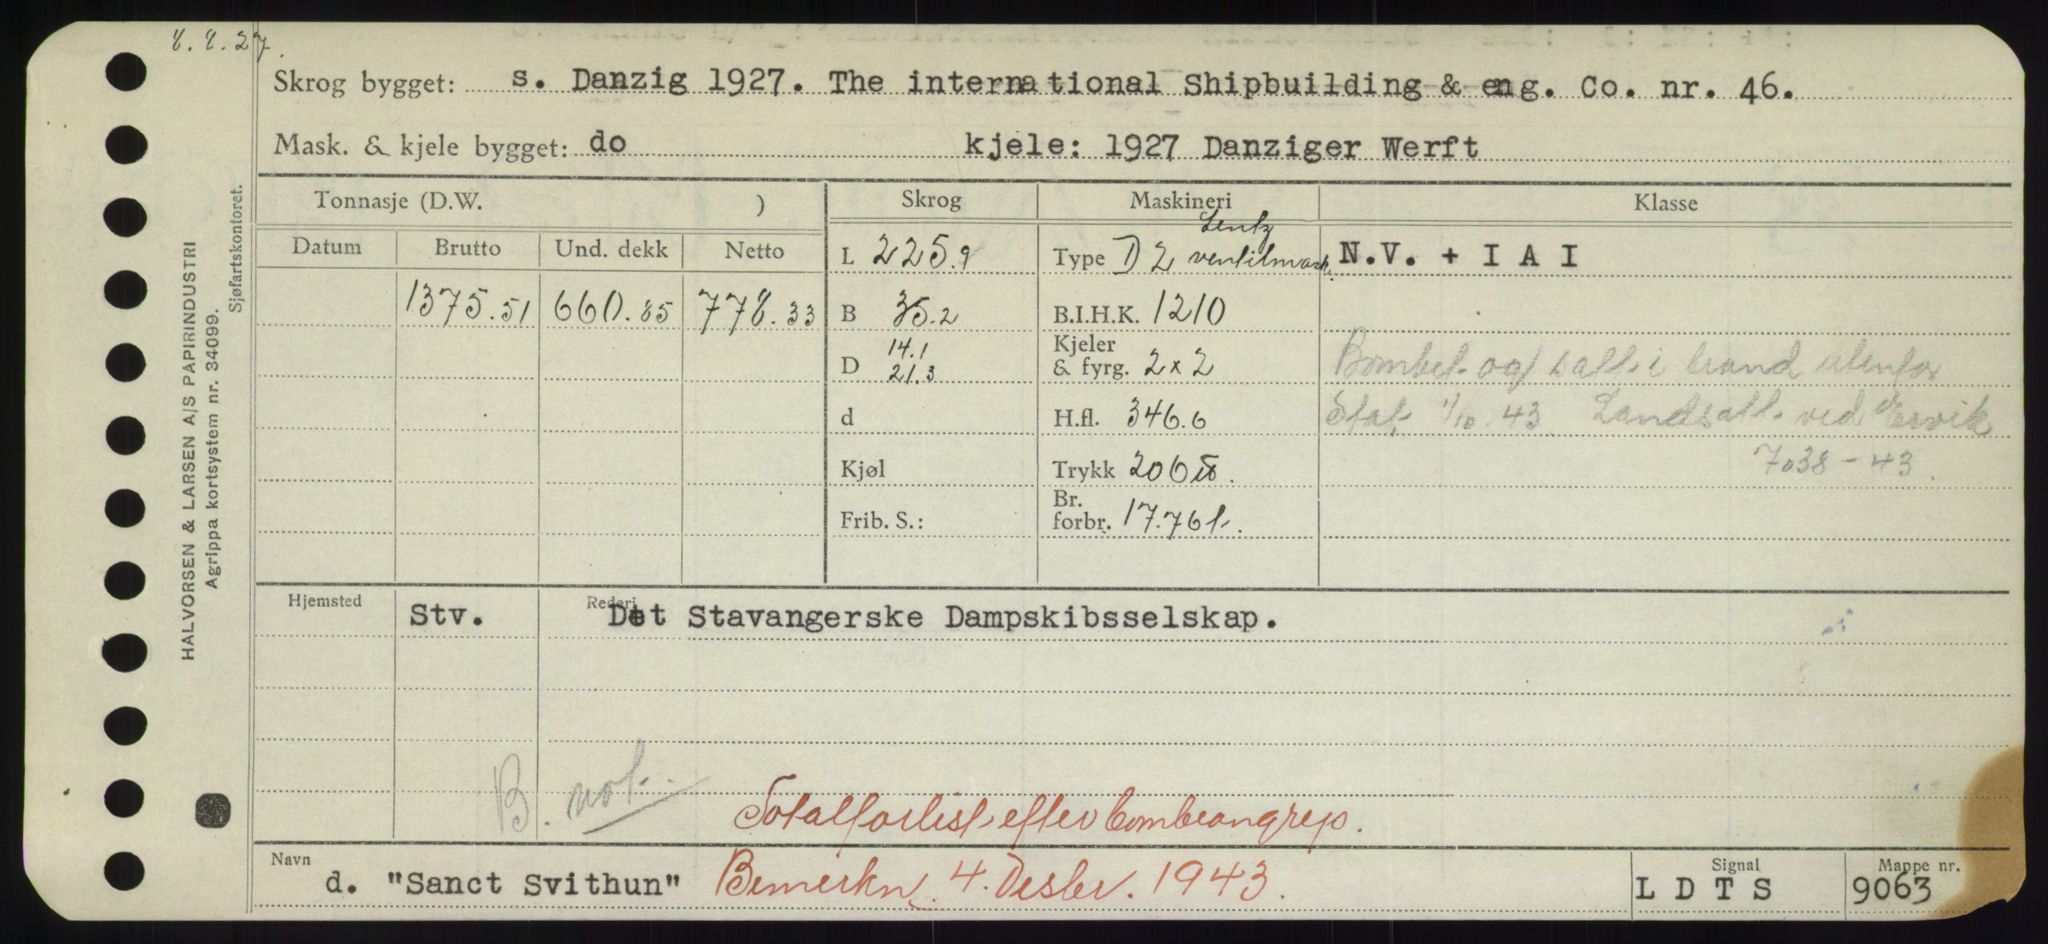 8.8.27.
Skrog bygget: s. Danzig 1927. The international Shipbuilding & eng. Co. nr. 46.
Mask. & kjele bygget: do kjele: 1927 Danziger Werft
Tonnasje (D.W. ) Skrog Maskineri Klasse
Datum Brutto Und. dekk Netto
L 225.9 Type D 2 Lentz ventilmask. N.V. + I A I
1375.51 660.85 778.33 B 35.2 B.I.H.K. 1210
D 14.1 21.3 Kjeler & fyrg. 2x2 Bombet og satt i brand utenfor
d H.fl. 346.6 Stat 1/10.43 Landsatt ved Ervik
Kjøl Trykk 206 7038-43
Frib. S.: Br. forbr. 17.76 t.
Hjemsted Stv. Rederi Det Stavangerske Dampskibsselskap.
B. not.
Totalforlist efter bombeangrep.
Navn d. "Sanct Svithun" Bemerkn. 4. Desbr. 1943. Signal LDTS Mappe nr. 9063
HALVORSEN & LARSEN A/S PAPIRINDUSTRI
Agrippa kortsystem nr. 34099.
Sjøfartskontoret.